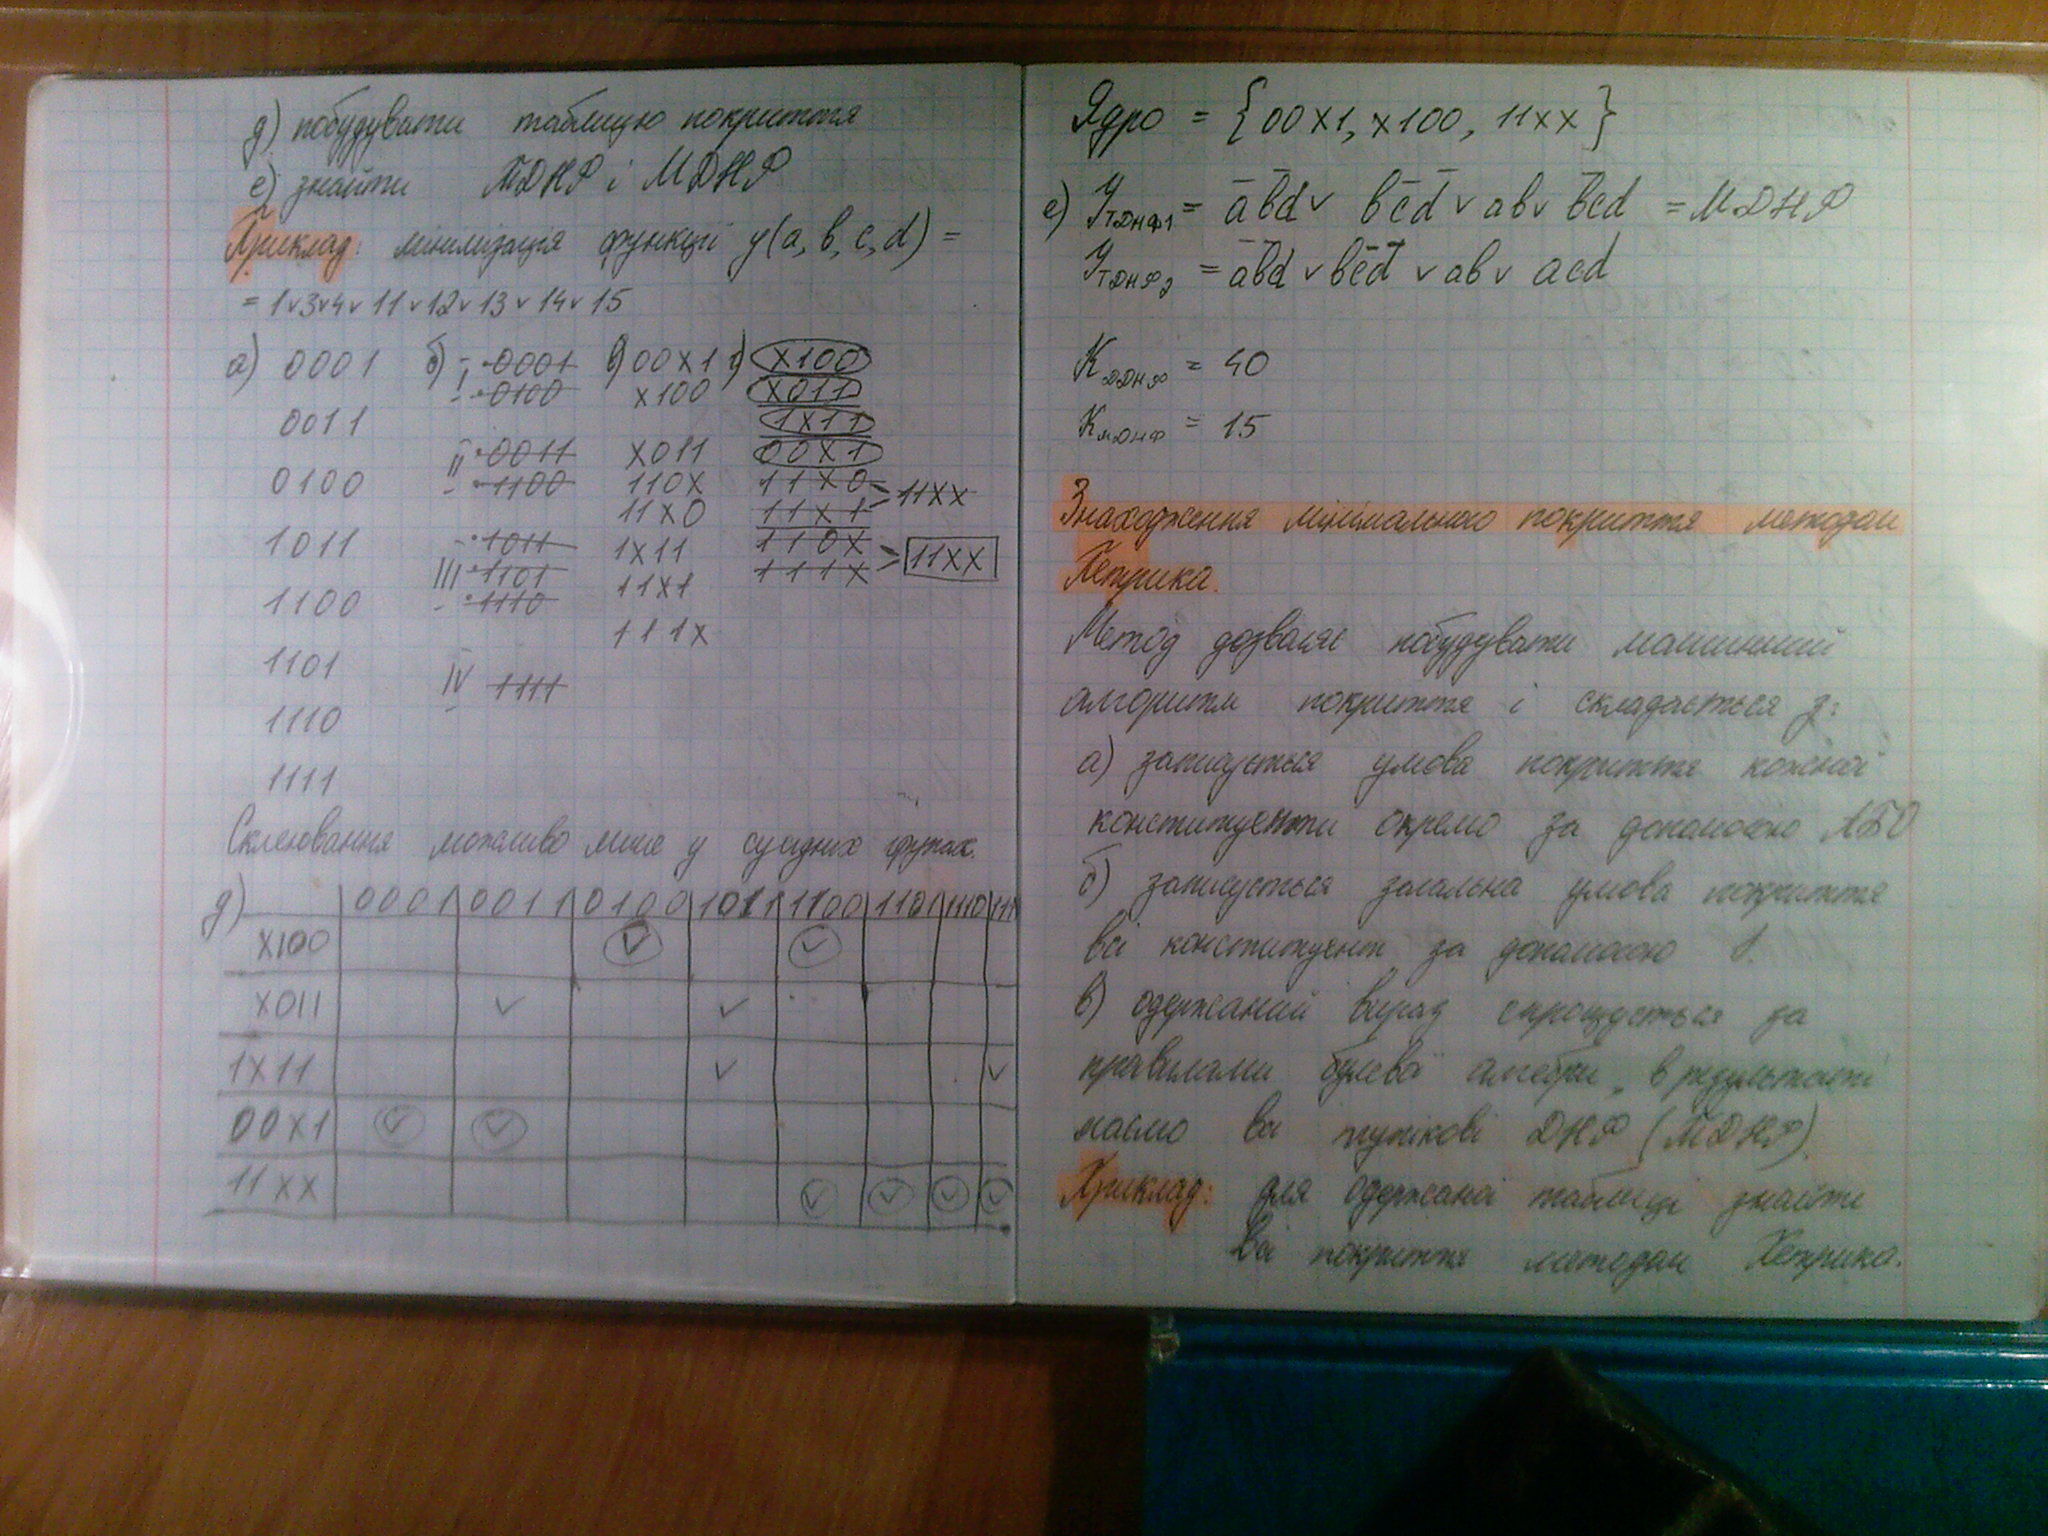 д) побудувати таблицю покриття
е) знайти ТДНФ і МДНФ
Приклад: мінімізація функції y(a, b, c, d) =
= 1∨3∨4∨11∨12∨13∨14∨15
а) 0001 б) I 0001 в) 00X1 г) X100
0100 X100 X011
0011 1X11
II 0011 X011 00X1
0100 1100 110X 11X0 11XX
11X0 11X1
1011 1011 1X11 110X 11XX
III 1101 11X1 111X
1100 1110
111X
1101 IV 1111
1110
1111
Склеювання можливо лише у сусідніх групах.
д) 0001 0011 0100 1011 1100 1101 1110 111
X100 ✓ ✓
X011 ✓ ✓
1X11 ✓ ✓
00X1 ✓ ✓
11XX ✓ ✓ ✓ ✓
Ядро = {00X1, X100, 11XX}
е) YТДНФ1 = a̅b̅d ∨ bc̅d̅ ∨ ab ∨ b̅cd = МДНФ
YТДНФ2 = a̅b̅d ∨ bc̅d̅ ∨ ab ∨ acd
KДДНФ = 40
KМДНФ = 15
Знаходження мінімального покриття методом
Петрика.
Метод дозволяє побудувати машинний
алгоритм покриття і складається з:
а) записується умова покриття кожної
конституенти окремо за допомогою АБО
б) записується загальна умова покриття
всі конституент за допомогою
в) одержаний вираз спрощується за
правилами булевої алгебри, в результаті
маємо всі тупікові ДНФ (МДНФ).
Приклад: для одержаної таблиці знайти
всі покриття методом Петрика.